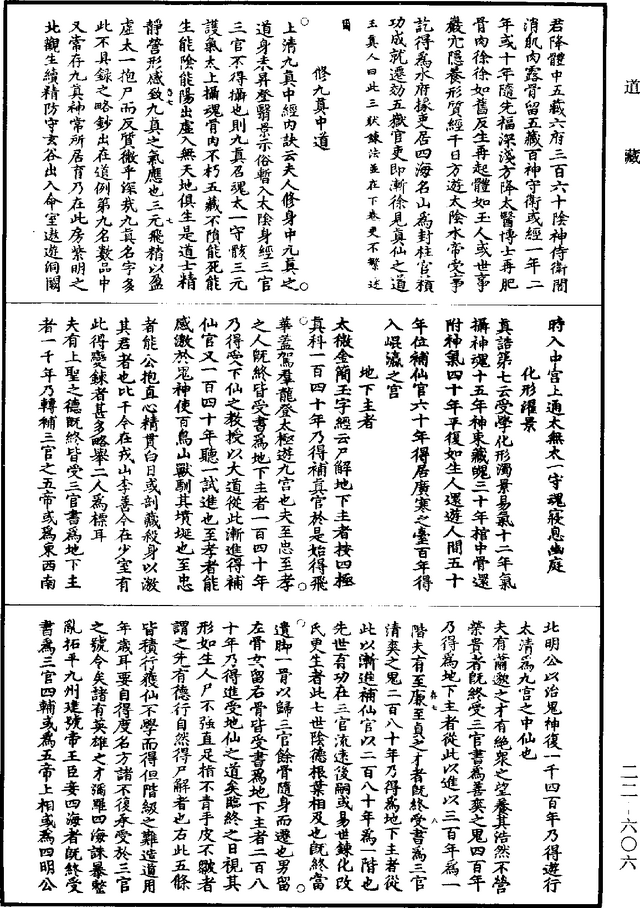 道藏
君降體中五藏六府三百六十陰神侍衛間
消肌肉露骨留五藏百神守衛或經一年二
年或十年隨先福深淺方降太醫博士再肥
骨肉徐徐如舊反生再起體如王人或世事
巖穴隱養形質經千日方遊太陰水帝受事
訖得為水府掾吏居四海名山為封柱官積
功成就遷効五嶽官吏即漸徐見真仙之道
王真人曰此三狀鍊法並在下卷更不繁述
修九真中道
上清九真中經內訣云夫人修身中九真之
道身未昇登翳景示俗暫入太陰身經三官
三官不得攝也則九真召魂太一守骸三元
護氣太上攝魂骨肉不朽五藏不隕能死能
生能陰能陽出虛入無天地俱生是道士精
靜營形感致九真之氣應也三元飛精以盈
虛太一抱尸而反質微乎深哉九真名字多
此不具錄之略鈔出在道例第九名數品中
又常存九真神常所居育乃在此房紫明之
北觀生績精防守玄谷出入命室遨遊洞闕
時入中宮上通太無太一守魂寢息幽庭
化形濯景
真誥第七云受學化形濁景易氣十二年氣
攝神魂十五年神束藏魄三十年棺中骨還
附神氣四十年平復如生人還遊人間五十
年位補仙官六十年得居廣寒之臺百年得
入崐瀛之宮
地下主者
太微金簡玉字經云尸解地下主者按四極
真科一百四十年乃得補真官於是始得飛
華蓋駕羣龍登太極遊九宮也夫至忠至孝
之人既終皆受書為地下主者一百四十年
乃得受下仙之教授以大道從此漸進得補
仙官又一百四十年聽一試進也至孝者能
感激於鬼神使百鳥山獸馴其墳埏也至忠
者能公抱直心精貫白日或剖藏殺身以激
其君者也比干今在戎山李善今在少室有
此得變鍊者甚多略舉二人為標耳
夫有上聖之德既終皆受三官書為地下主
者一千年乃轉補三官之五帝或為東西南
北明公以治鬼神復一千四百年乃得遊行
太清為九宮之中仙也
夫有蕭邈之才有絕衆之望養其浩然不營
榮貴者既終受三官書為善爽之鬼四百年
乃得為地下主者從此以進以三百年為一
階夫有至廉至貞之才者既終受書為三官
清爽之鬼二百八十年乃得為地下主者從
此以漸進補仙官以二百八十年為一階也
先世有功在三官流逮後嗣或易世鍊化改
氏更生者此七世陰德根葉相及也既終當
遺脚一骨以歸三官餘骨隨身而遷也男留
左骨女留右骨皆受書為地下主者二百八
十年乃得進受地仙之道矣臨終之日視其
形如生人尸不強直足指不青手皮不皺者
謂之先有德行自然得尸解者也右此五條
皆積行獲仙不學而得但階級之難造道用
年歲耳要自得度名方諸不復承受於三官
之號令矣諸有英雄之才濁難四海誅暴整
亂拓平九州建號帝王臣妾四海者既終受
書為三官四輔或為五帝上相或為四明公
二二—六〇六